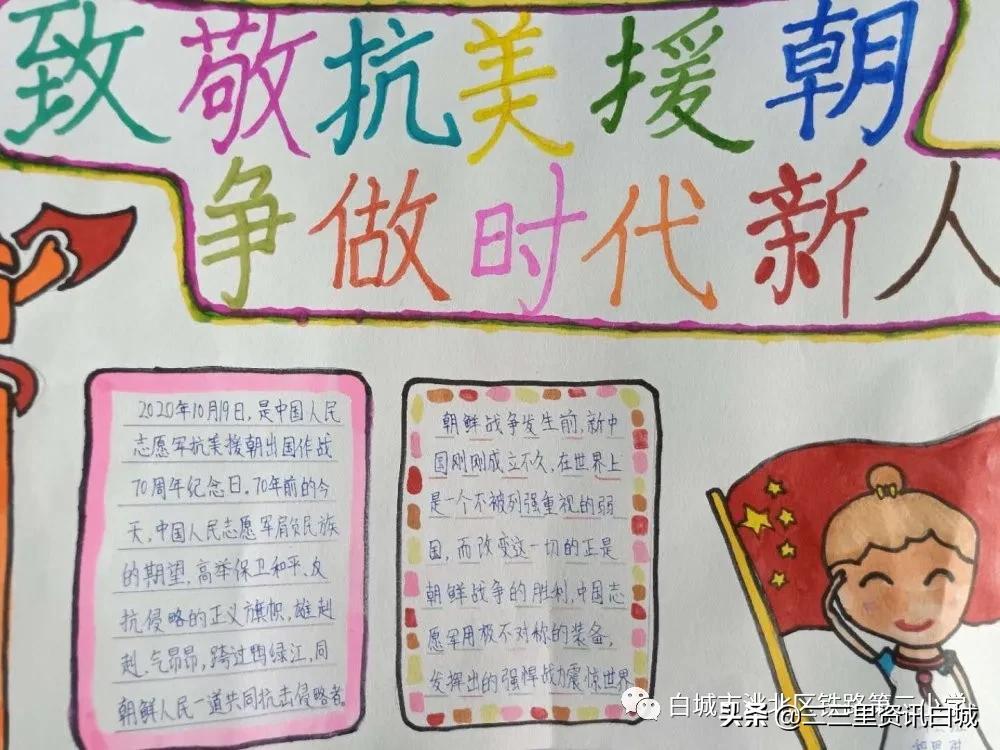 致敬抗美援朝
争做时代新人
2020年10月19日,是中国人民
志愿军抗美援朝出国作战
70周年纪念日。70年前的今
天,中国人民志愿军肩负民族
的期望,高举保卫和平、反
抗侵略的正义旗帜,雄赳
赳,气昂昂,跨过鸭绿江,同
朝鲜人民一道共同抗击侵略者。
朝鲜战争发生前,新中
国刚刚成立不久,在世界上
是一个不被列强重视的弱
国,而改变这一切的正是
朝鲜战争的胜利,中国志
愿军用极不对称的装备,
发挥出的强悍战力震惊世界
白城市洮北区铁路第二小学
头条@三三里资讯白城